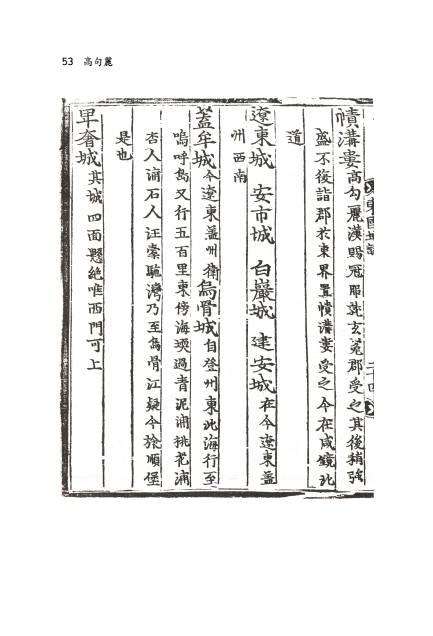 53 高句麗
東國地誌
二十四
幘溝婁高勾麗漢賜冠服詣玄菟郡受之其後稍強
盛不復詣郡於東界置幘溝婁受之今在咸鏡北
道
遼東城 安市城 白巖城 建安城在今遼東蓋
州西南
蓋牟城今遼東蓋州衛烏骨城自登州東北海行至
嗚呼島又行五百里東傍海堧過青泥浦桃花浦
杏人浦石人汪橐駞灣乃至烏骨江疑今旅順堡
是也
卑奢城其城四面懸絶唯西門可上